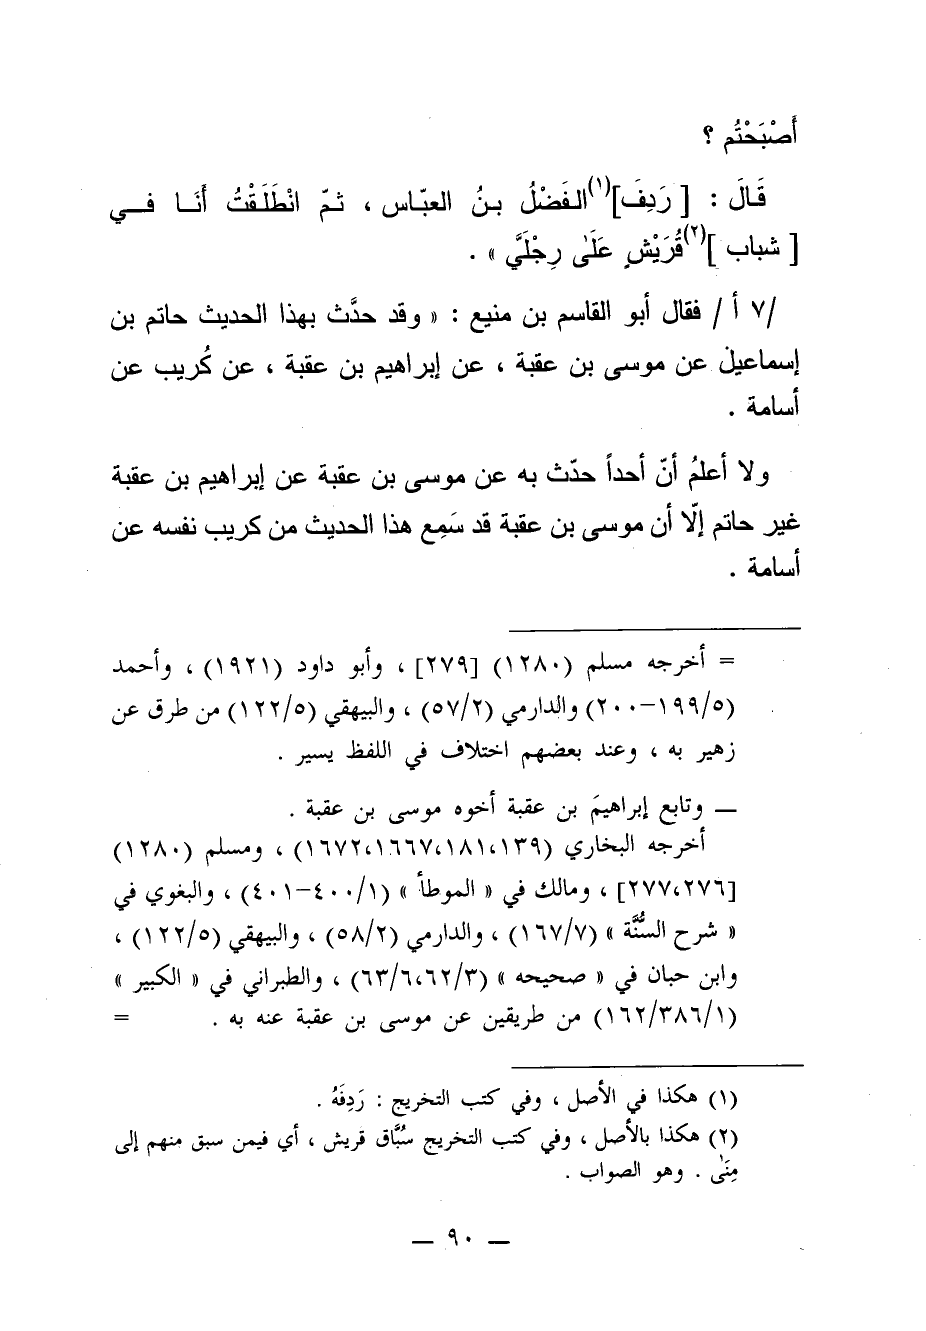 أَصْبَحْتُم ؟
قَالَ : [ رَدِفَ](١)الفَضْلُ بنُ العبّاس ، ثمّ انْطَلَقْتُ أَنَا في
[ شباب ](٢)قُرَيْشٍ عَلَىٰ رِجْلَيَّ » .
/٧ أ/ فقال أبو القاسم بن منيع : « وقد حدَّث بهذا الحديث حاتم بن
إسماعيل عن موسى بن عقبة ، عن إبراهيم بن عقبة ، عن كُريب عن
أسامة .
ولا أعلمُ أنّ أحداً حدّث به عن موسى بن عقبة عن إبراهيم بن عقبة
غير حاتم إلّا أن موسى بن عقبة قد سَمِع هذا الحديث من كريب نفسه عن
أسامة .
= أخرجه مسلم (١٢٨٠) [٢٧٩] ، وأبو داود (١٩٢١) ، وأحمد
(١٩٩/٥-٢٠٠) والدارمي (٥٧/٢) ، والبيهقي (١٢٢/٥) من طرق عن
زهير به ، وعند بعضهم اختلاف في اللفظ يسير .
— وتابع إبراهيمَ بن عقبة أخوه موسى بن عقبة .
أخرجه البخاري (١٣٩،١٨١،١٦٦٧،١٦٧٢) ، ومسلم (١٢٨٠)
[٢٧٦،٢٧٧] ، ومالك في « الموطأ » (٤٠٠/١-٤٠١) ، والبغوي في
« شرح السُّنَّة » (١٦٧/٧) ، والدارمي (٥٨/٢) ، والبيهقي (١٢٢/٥) ،
وابن حبان في « صحيحه » (٦٢/٣،٦٣/٦) ، والطبراني في « الكبير »
(١٦٢/٣٨٦/١) من طريقين عن موسى بن عقبة عنه به . =
(١) هكذا في الأصل ، وفي كتب التخريج : رَدِفَهُ .
(٢) هكذا بالأصل ، وفي كتب التخريج سُبَّاق قريش ، أي فيمن سبق منهم إلى
مِنَىٰ . وهو الصواب .
— ٩٠ —